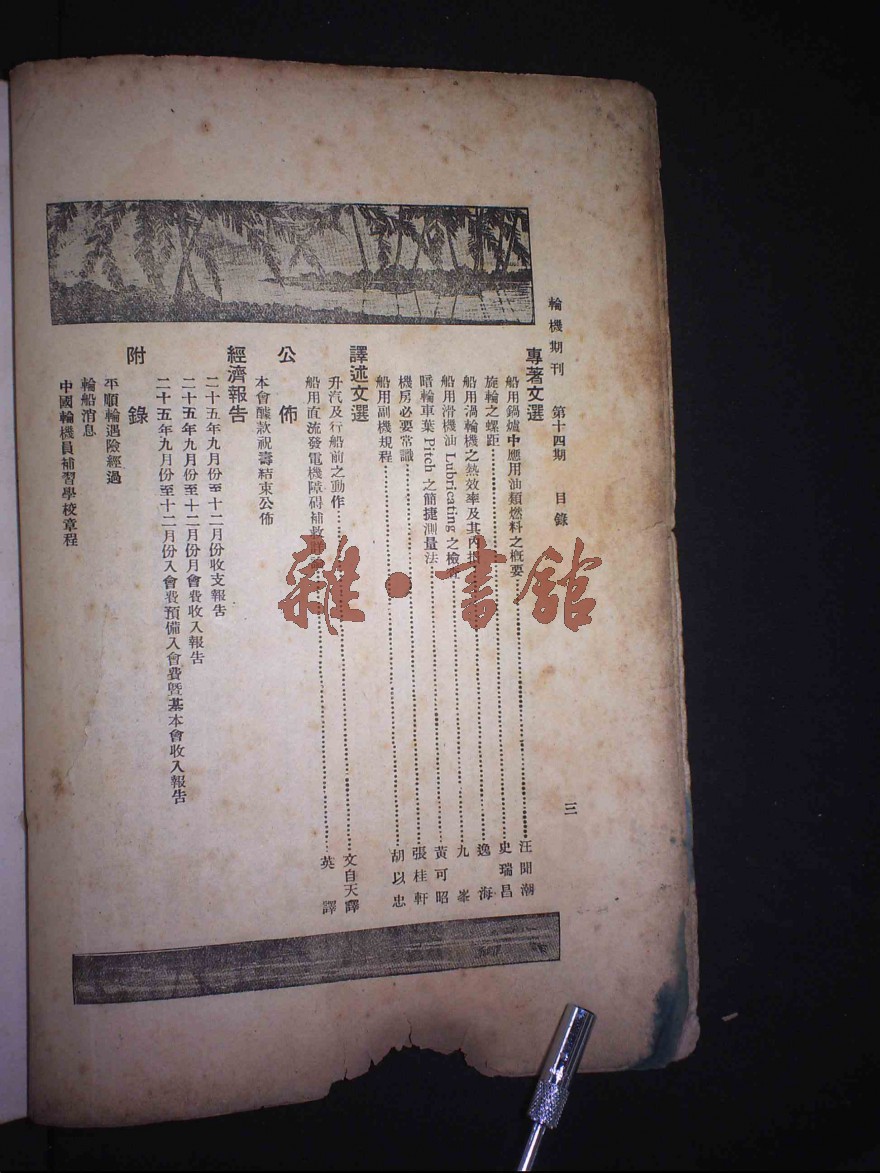 輪機期刊 第十四期 目錄 三
專著文選
船用鍋爐中應用油類燃料之概要……汪聞潮
旋輪之螺距……史瑞昌
船用渦輪機之熱效率及其內損……逸海
船用滑機油 Lubricating 之檢查……九峯
暗輪車葉 Pitch 之簡捷測量法……黃可昭
機房必要常識……張桂軒
船用副機規程……胡以忠
譯述文選
升汽及行船前之動作……文自天譯
船用直流發電機障碍補救……英譯
公佈
本會醵款祝壽結束公佈
經濟報告
二十五年九月份至十二月份收支報告
二十五年九月份至十二月份月會費收入報告
二十五年九月份至十二月份入會費預備入會費暨基本會收入報告
附錄
平順輪遇險經過
輪船消息
中國輪機員補習學校章程
雜·書館